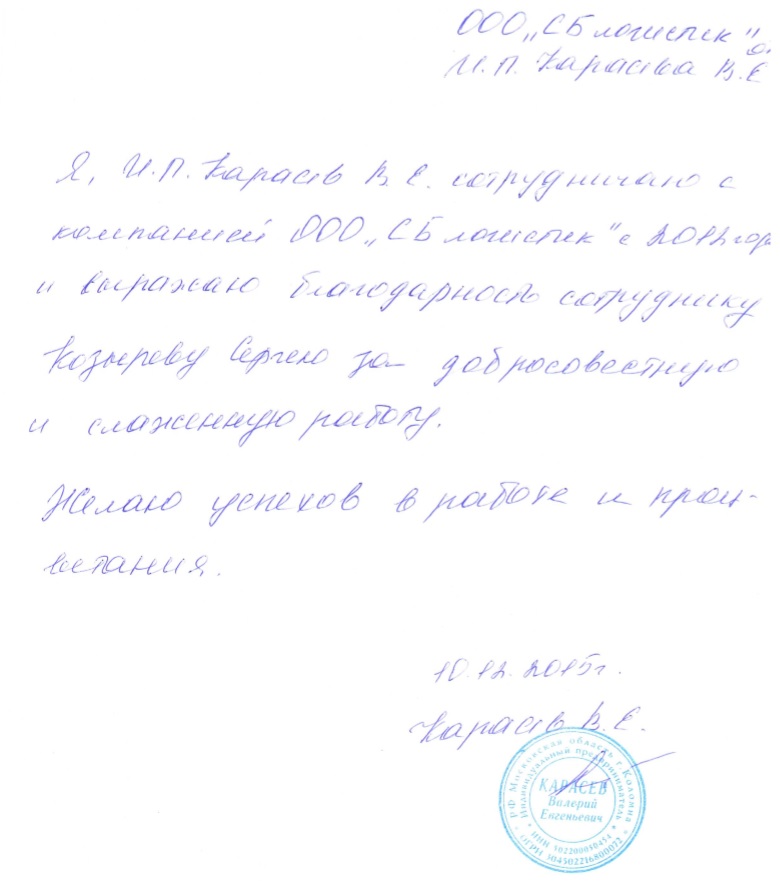 ООО „СБ логистик"
И.П. Карасёва В.Е
Я, И.П. Карасёв В.Е. сотрудничаю с
компанией ООО „СБ логистик" с 2012 год
и выражаю благодарность сотруднику
Козыреву Сергею за добросовестную
и слаженную работу.
Желаю успехов в работе и проц-
ветания.
10.12.2015г.
Карасёв В.Е.
РФ Московская область г. Коломна
Индивидуальный предприниматель
КАРАСЕВ
Валерий
Евгеньевич
ОГРН 304502216800022